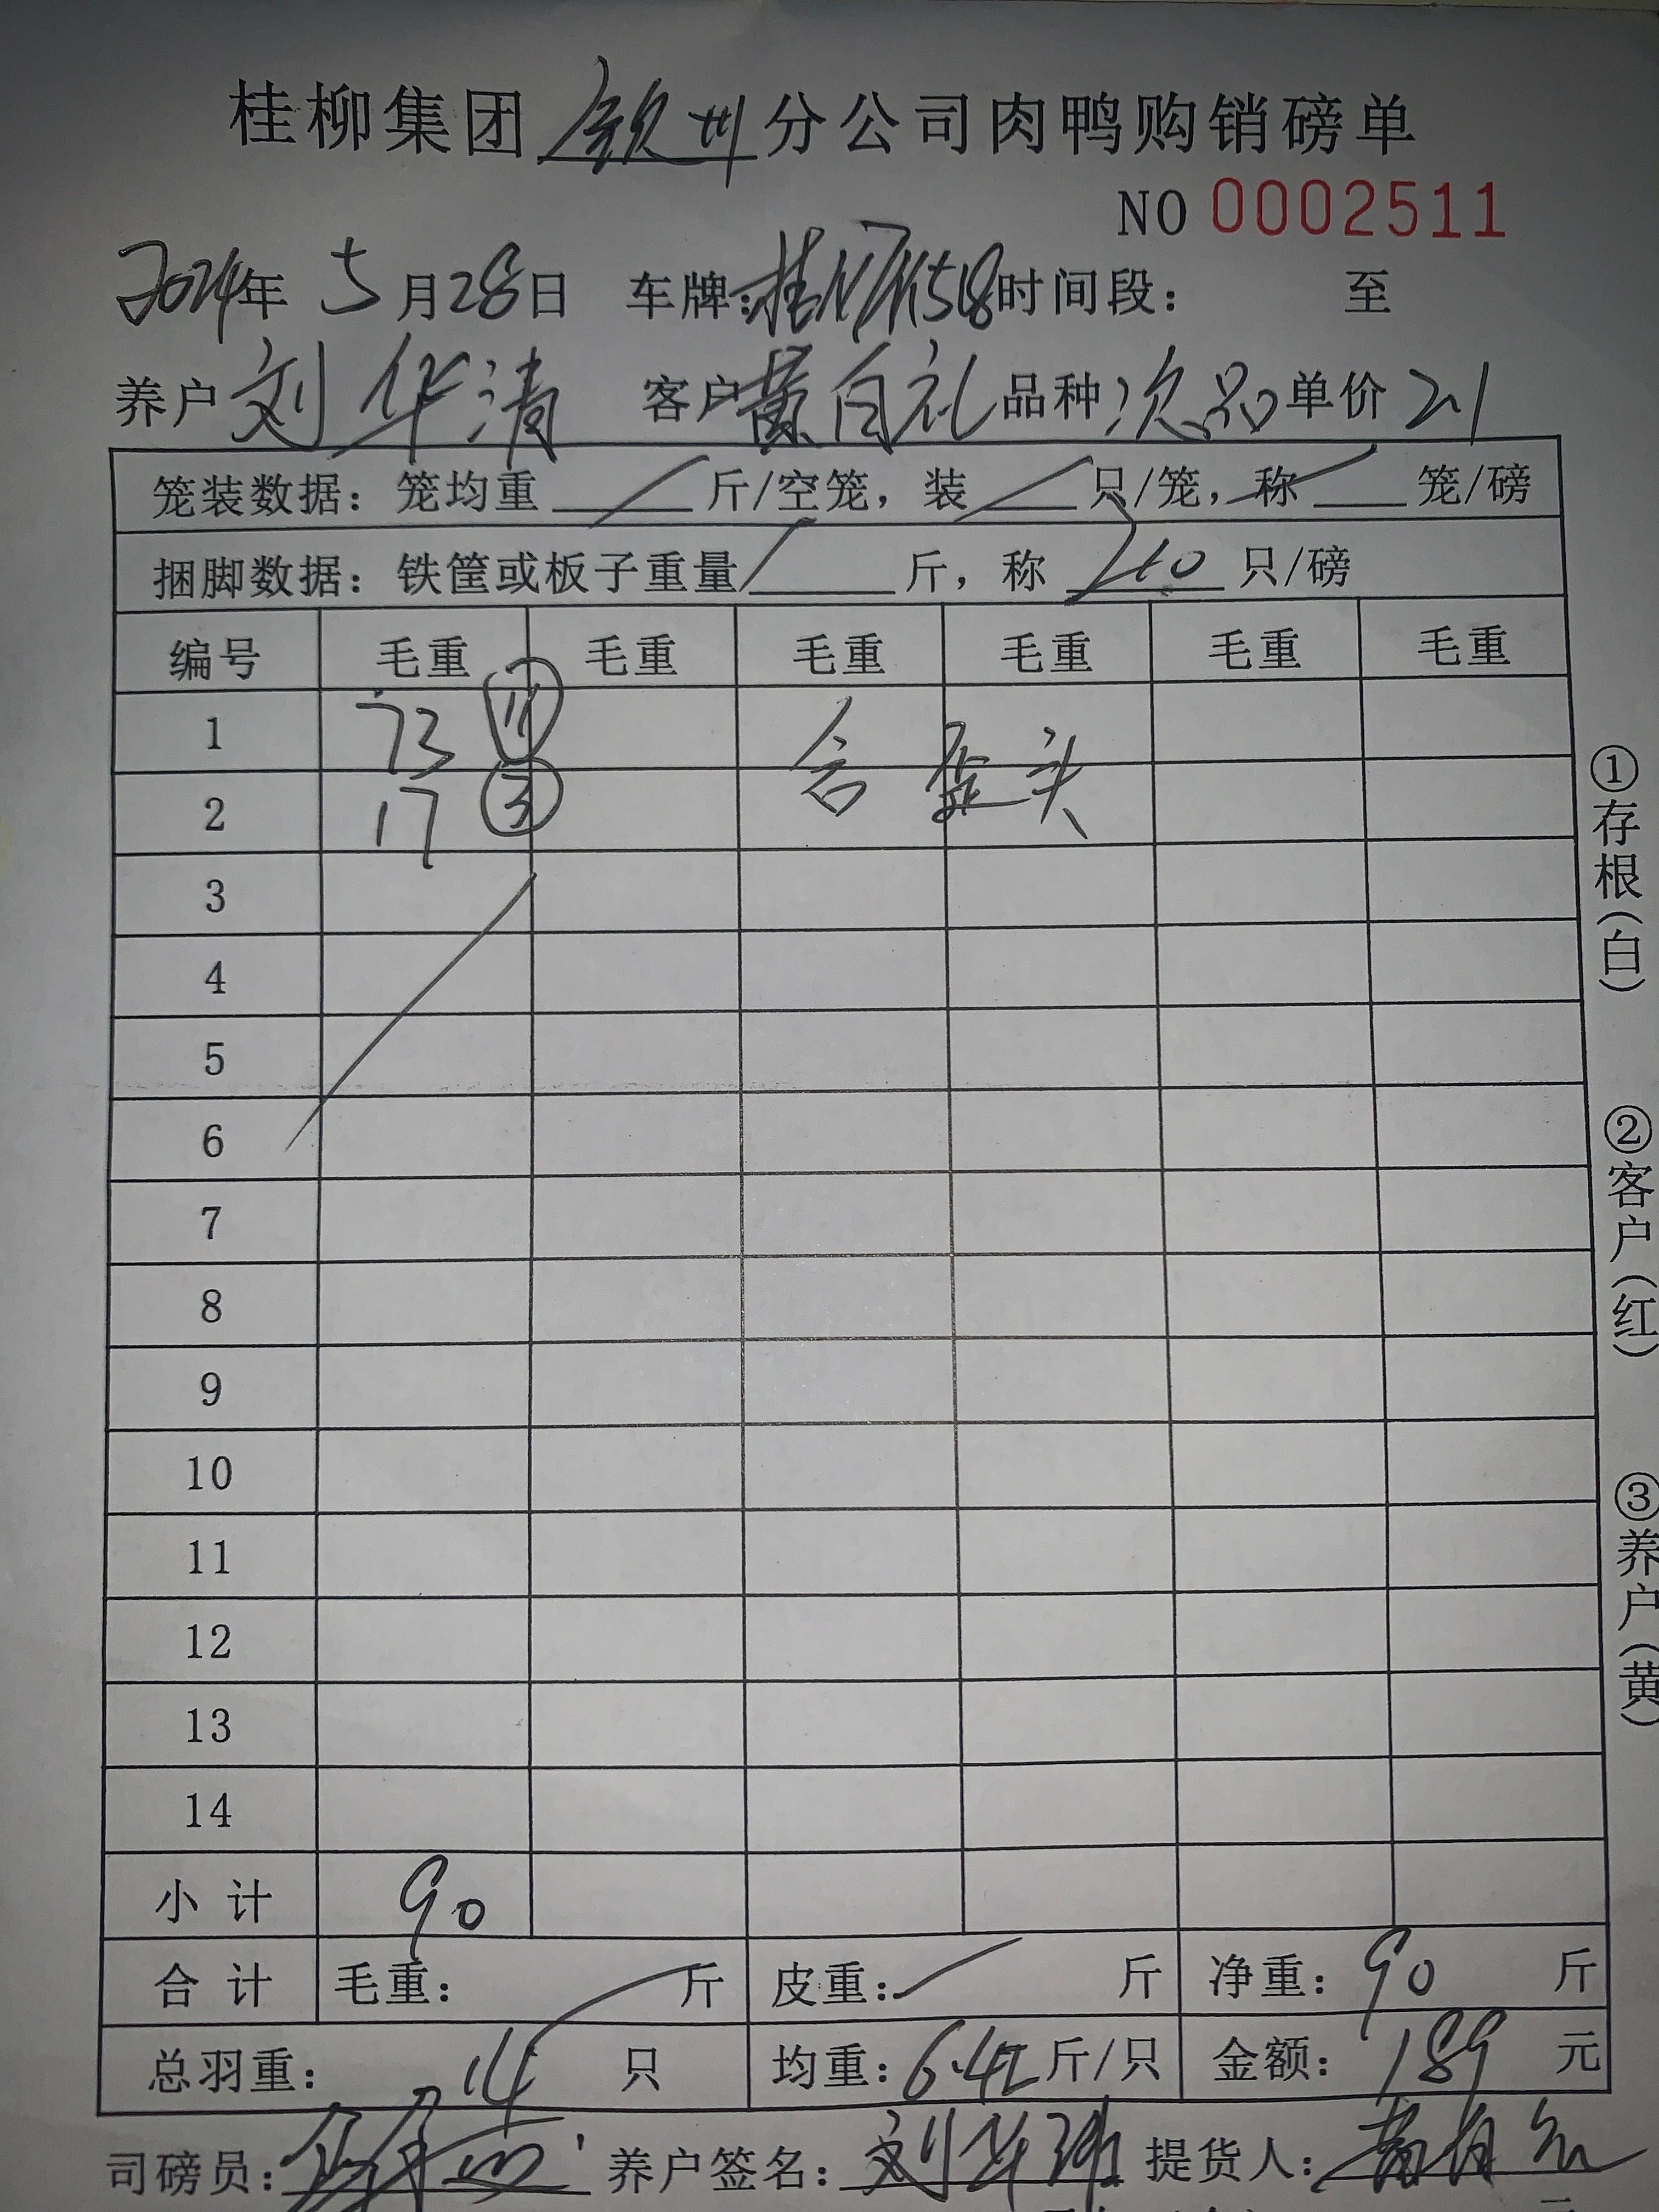 桂柳集团钦州分公司肉鸭购销磅单
NO 0002511
2024年 5月28日 车牌:桂N7K518时间段: 至
养户刘华清 客户黄白礼品种次品单价2.1
笼装数据:笼均重 斤/空笼,装 只/笼,称 笼/磅
捆脚数据:铁筐或板子重量 斤,称 只/磅
编号 毛重 毛重 毛重 毛重 毛重 毛重
1 73 ⑪ 含歪头
2 17 ③
3
4
5
6
7
8
9
10
11
12
13
14
小计 90
合计 毛重: 斤 皮重: 斤 净重:90 斤
总羽重: 14 只 均重:6.42斤/只 金额:189元
司磅员: 养户签名:刘华 提货人:
①存根(白)
②客户(红)
③养户(黄)